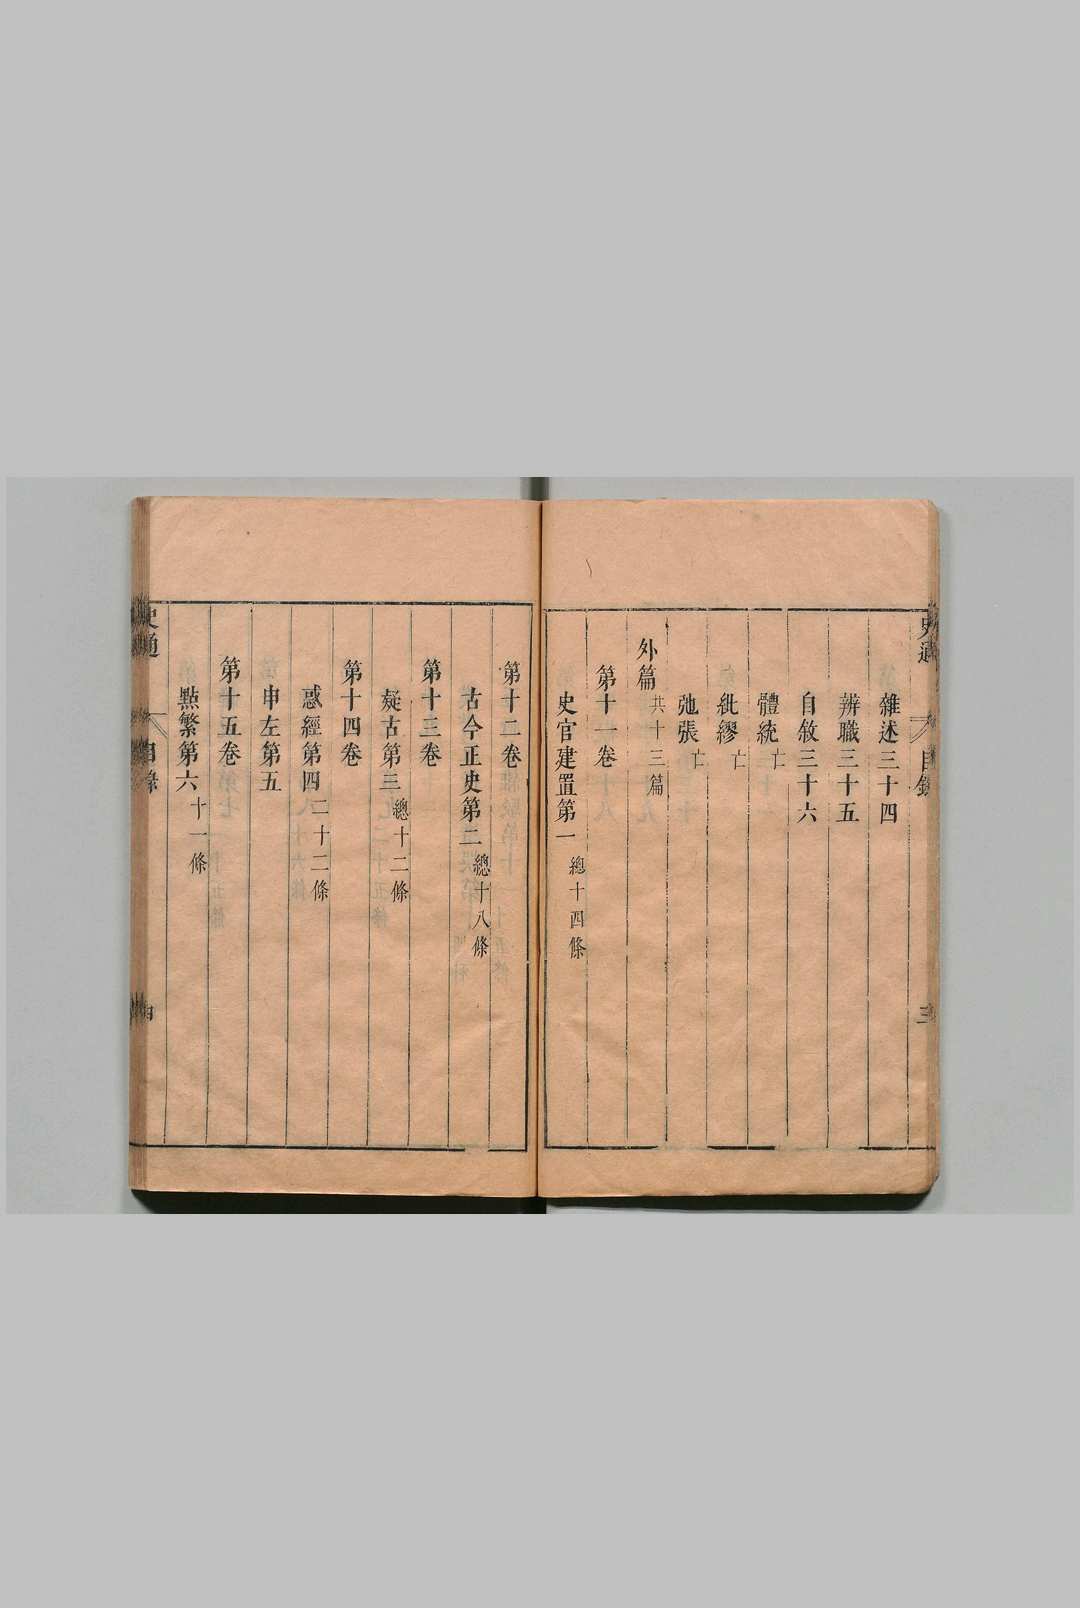 史通
目錄
三
雜述三十四
辨職三十五
自敘三十六
體統亡
紕繆亡
弛張亡
外篇共十三篇
第十一卷
史官建置第一總十四條
第十二卷
古今正史第二總十八條
第十三卷
疑古第三總十二條
第十四卷
惑經第四二十二條
申左第五
第十五卷
點繁第六十一條
史通
目錄
四